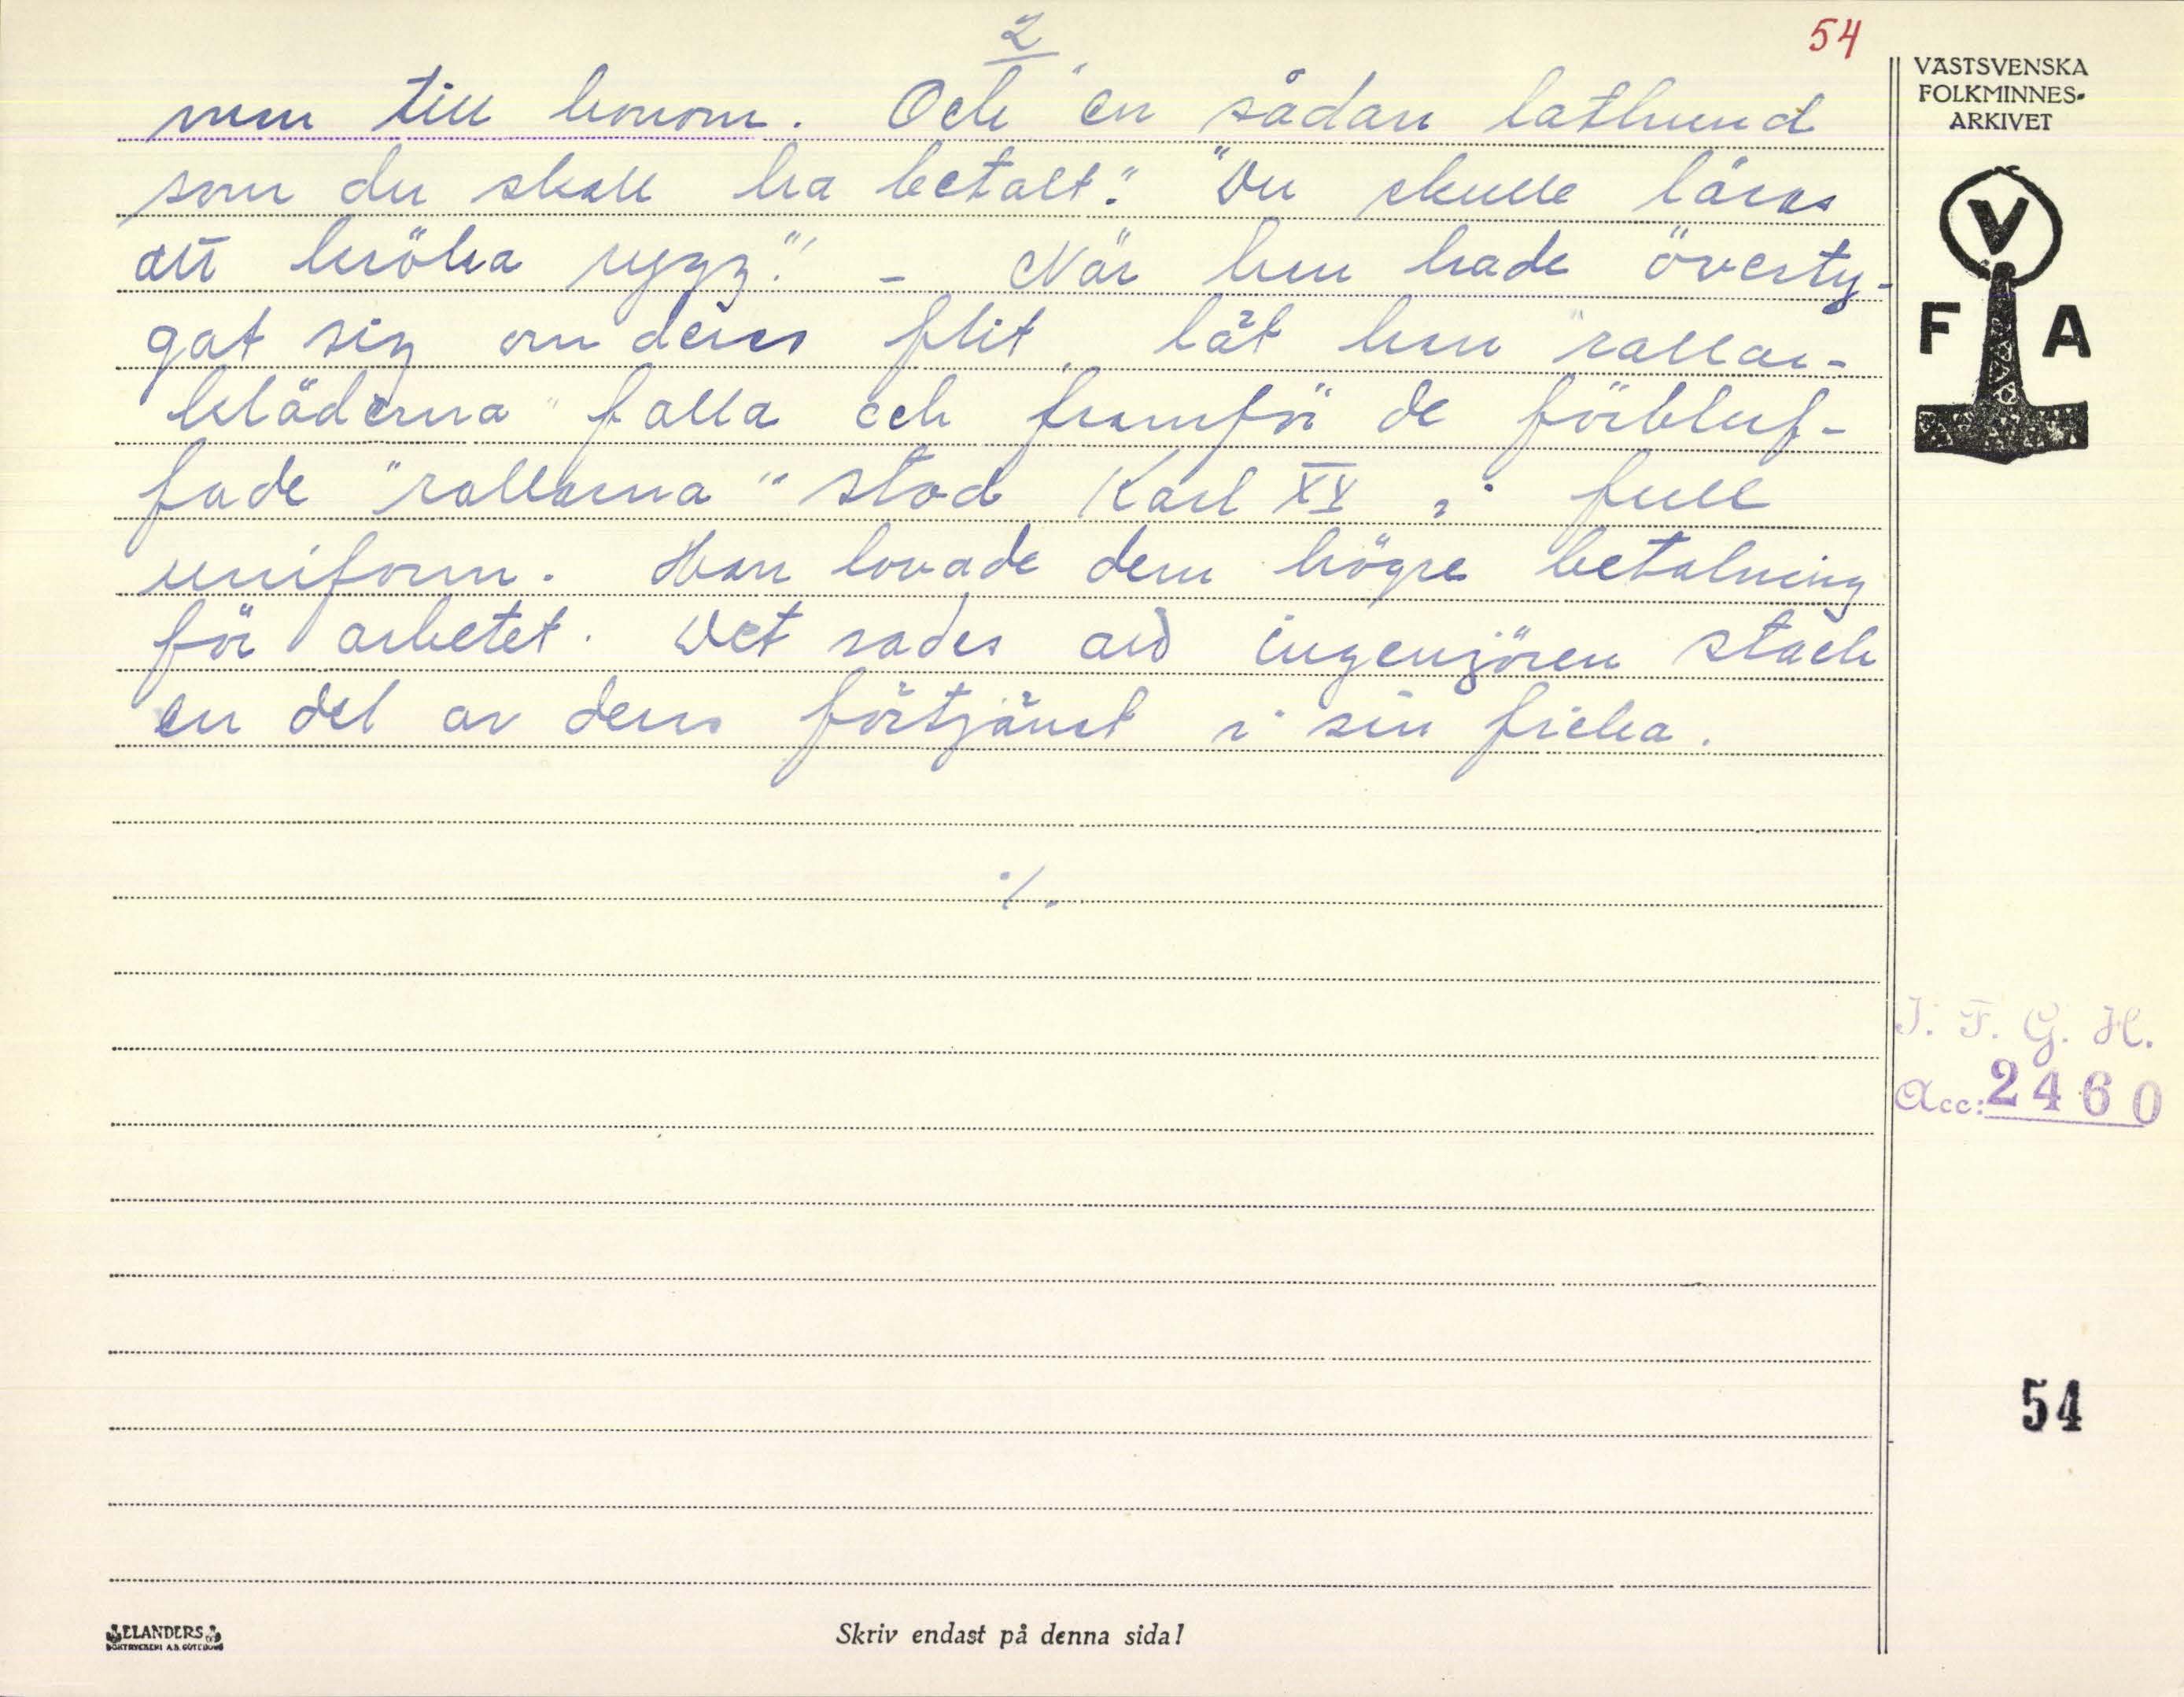 2
54
men till honom. Och "en sådan lathund
som du skall ha betalt." "Du skulle läras
att kröka rygg." - När han hade överty-
gat sig om deras flit, lät han "rallar-
kläderna" falla och framför de förbluf-
fade "rallarna" stod Karl XV i full
uniform. Han lovade dem högre betalning
för arbetet. Det sades att ingenjören stack
en del av deras förtjänst i sin ficka.
./.
VÄSTSVENSKA
FOLKMINNES-
ARKIVET
V
F A
I. F. G. H.
Acc: 2460
54
ELANDERS
BOKTRYCKERI A.B. GÖTEBORG
Skriv endast på denna sida!